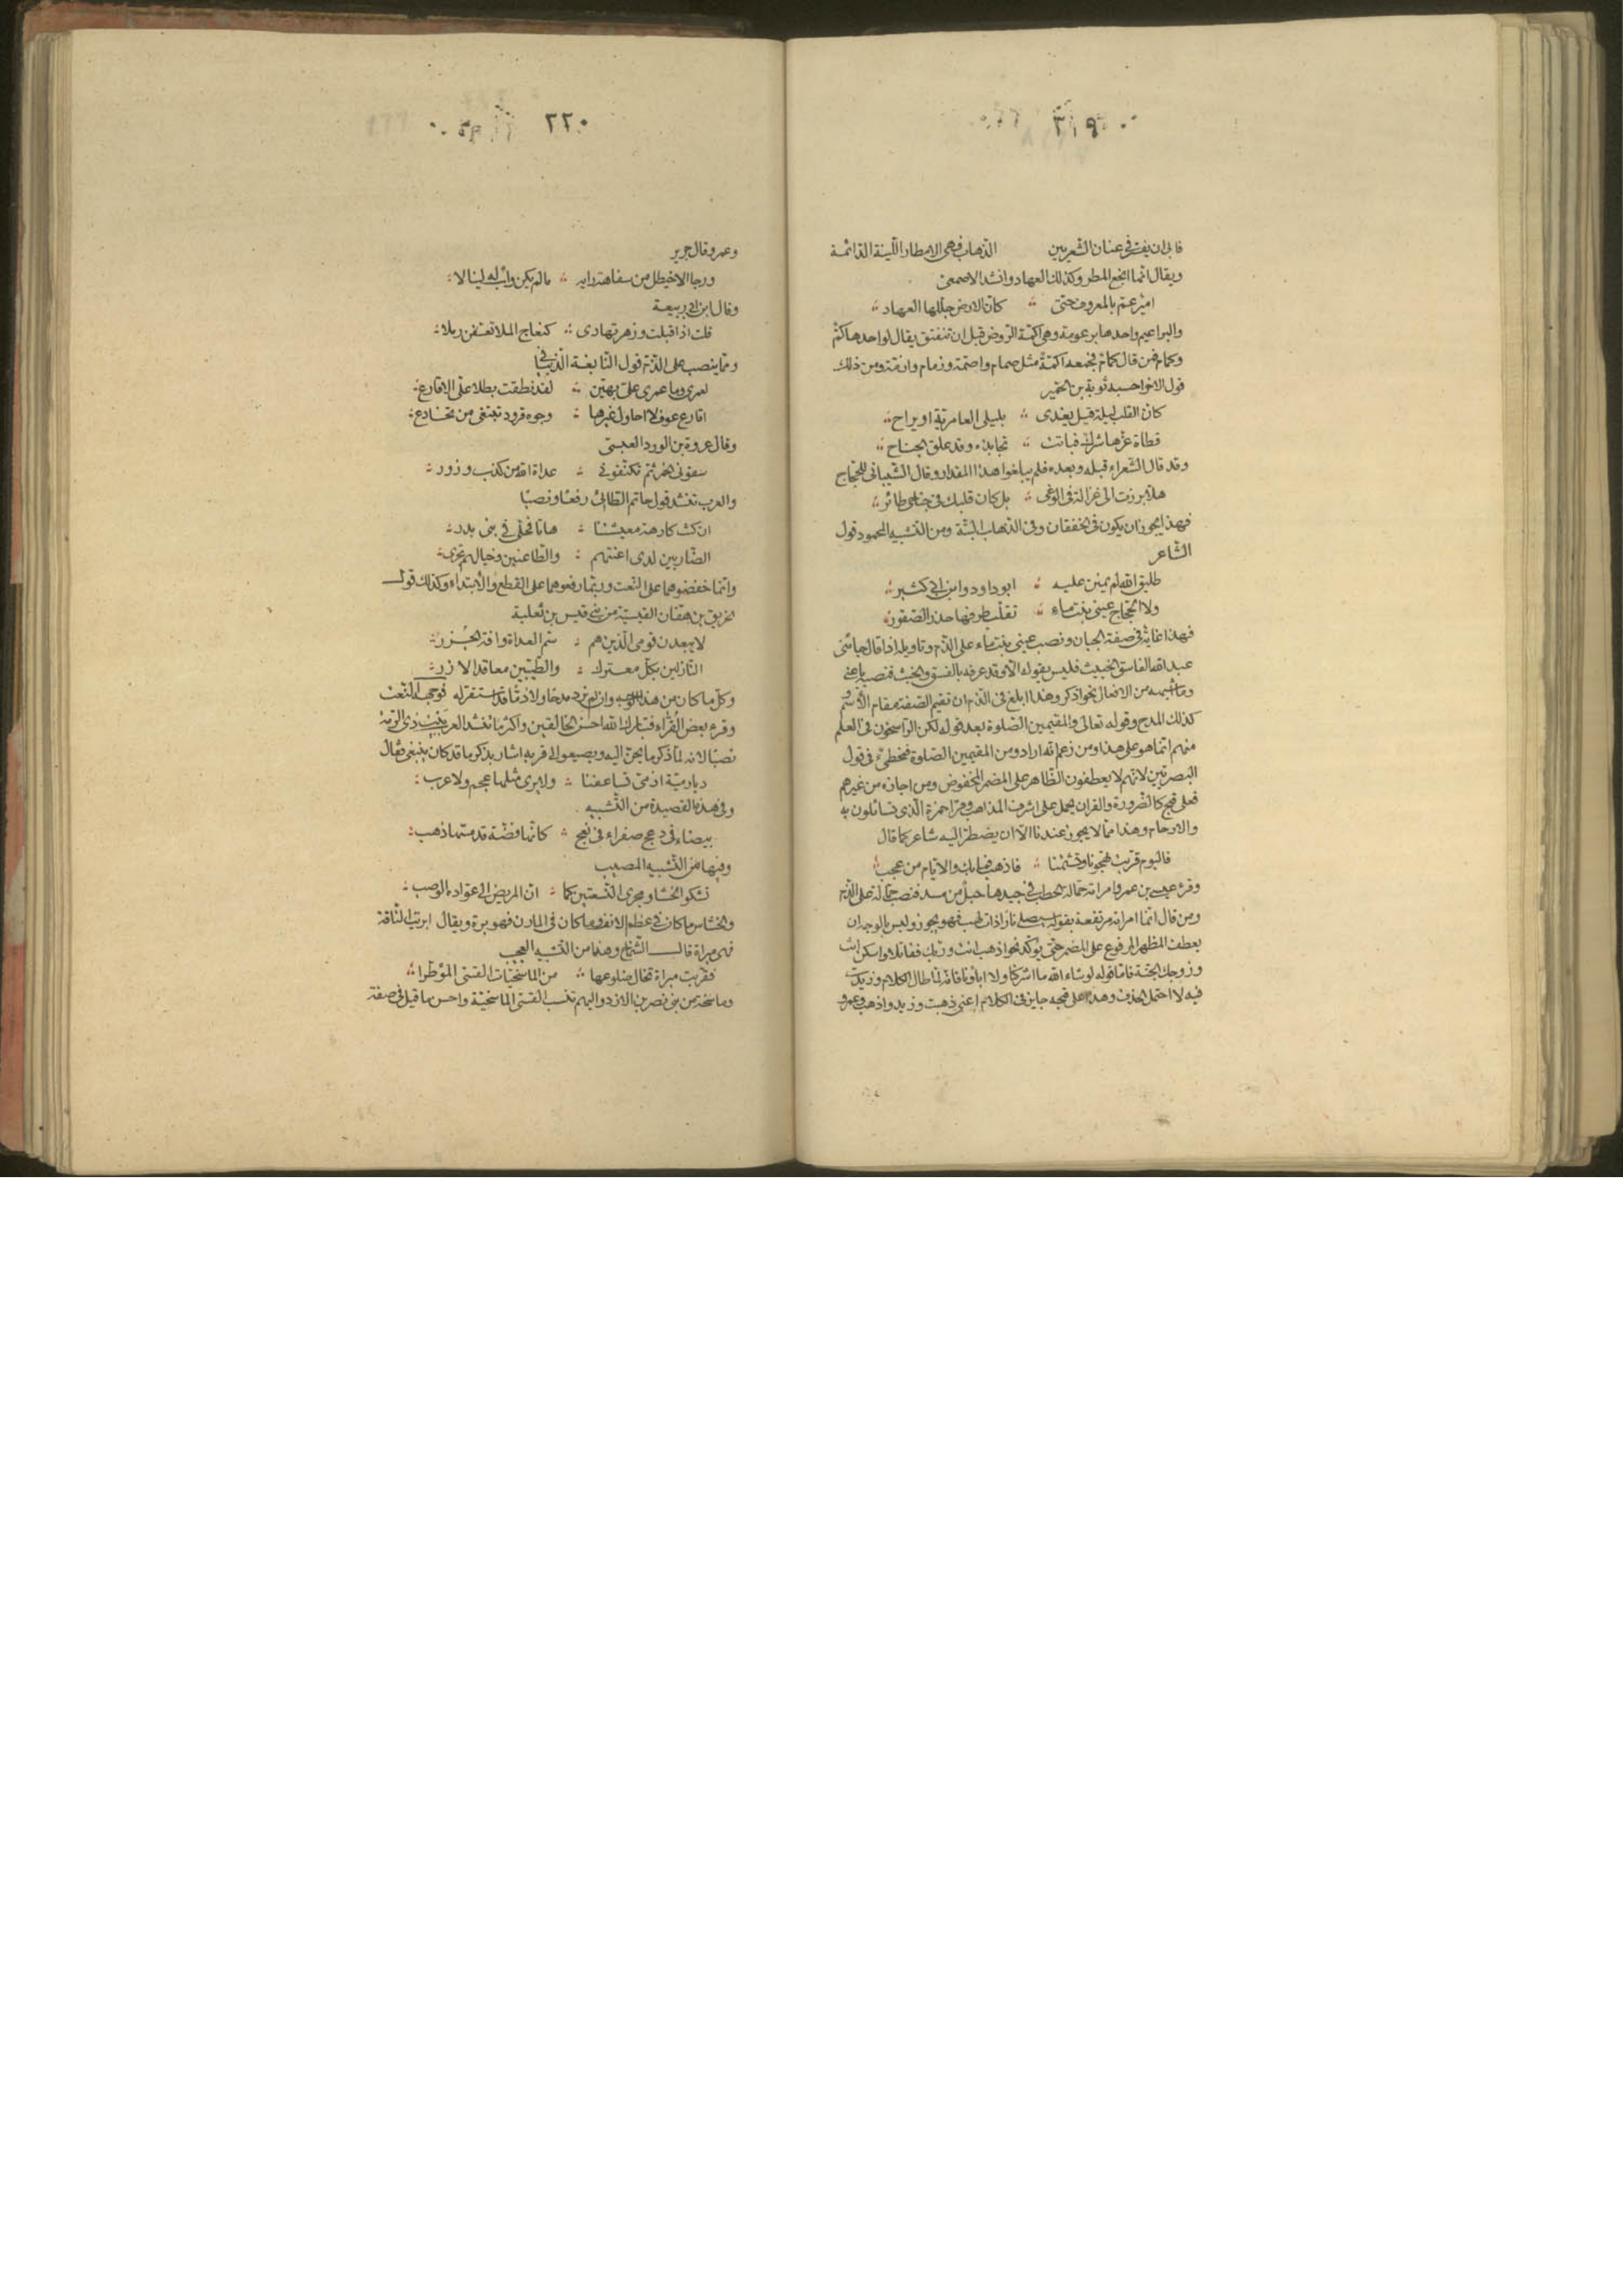 ٣١٩
فابى ان يفترق عنان الشعريين الذهاب فهى الامطار اللينة الدائمة
ويقال انما انجع المطر وكذلك العهاد وانشد الاصمعى
امير عم بالمعروف حتى كان الارض جللها العهاد
والبراعيم واحدها برعومة وهى اكمة الروض قبل ان تتفتق يقال لواحدها كم
وكمام فمن قال كمام فجمعه اكمة مثل صمام واصمة وزمام وازمة ومن ذلك
قول الاخر احسبه توبة بن الحمير
كان القلب ليلة قيل يغدى بليلى العامرية او يراح
قطاة عزها شرك فباتت تجاذبه وقد علق الجناح
وقد قال الشعراء قبله وبعده فلم يبلغوا هذا المقدار وقال الشيبانى للحجاج
هلا برزت الى غزالة فى الوغى بل كان قلبك فى جناحى طائر
فهذا يجوز ان يكون فى الخفقان وفى الذهاب البتة ومن التشبيه المحمود قول
الشاعر
طليق الله لم يمنن عليه ابو داود وابن ابى كثير
ولا الحجاج عينى بنت ماء تقلب طرفها حذر الصقور
فهذا غاية فى صفة الجبان ونصب عينى بنت ماء على الذم وتاويله اذا قال جاءنى
عبد الله الفاسق الخبيث فليس يقوله الا وقد عرفه بالفسق والخبث فنصبه باعنى
وما اشبهه من الافعال نحو اذكر وهذا ابلغ فى الذم ان تقيم الصفة مقام الاسم و
كذلك المدح وقوله تعالى والمقيمين الصلوة بعد قوله لكن الراسخون فى العلم
منهم انما هو على هذا ومن زعم انه اراد ومن المقيمين الصلوة فمخطئ فى قول
البصريين لانهم لا يعطفون الظاهر على المضمر المخفوض ومن اجازه من غيرهم
فعلى قبح كالضرورة والقران يحمل على اشرف المذاهب وقرا حمزة الذى تسائلون به
والارحام وهذا مما لا يجوز عندنا الا ان يضطر اليه شاعر كما قال
فاليوم قربت تهجونا وتشتمنا فاذهب فما بك والايام من عجب
وقرء عيسى بن عمر وامراته حمالة الحطب فى جيدها حبل من مسد فنصب حمالة على الذم
ومن قال انما امراته مرتفعة بقوله سيصلى نارا ذات لهب فهو يجوز وليس بالوجه ان
يعطف المظهر المرفوع على المضمر حتى يؤكد نحو اذهب انت وربك فقاتلا واسكن انت
وزوجك الجنة فاما قوله لو شاء الله ما اشركنا ولا اباؤنا فانه لما طال الكلام وزيدت
فيه لا احتمل الحذف وهذا على قبحه جايز فى الكلام اعنى ذهبت وزيد واذهب وعمرو
٢٢٠
وعمر وقال جرير
ورجا الاخيطل من سفاهة رايه مالم يكن واب له لينالا
وقال ابن ابى ربيعة
قلت اذ اقبلت وزهر تهادى كنعاج الملا تعسفن رملا
ومما ينصب على الذم قول النابغة الذبيانى
لعمرى وما عمرى على بهين لقد نطقت بطلا على الاقارع
اقارع عوف لا احاول غيرها وجوه قرود تبتغى من تخادع
وقال عروة بن الورد العبسى
سقونى الخمر ثم تكنفونى عداة الله من كذب وزور
والعرب تنشد قول حاتم الطائى رفعا ونصبا
ان كنت كارهة معيشتنا هاتا فحلى فى بنى بدر
الضاربين لدى اعنتهم والطاعنين وخيالهم تجرى
وانما خفضوهما على النعت وربما رفعوهما على القطع والابتداء وكذلك قول
الخرنق بن هفان القيسية من بنى قيس بن ثعلبة
لا يبعدن قومى الذين هم سم العداة وافة الجزر
النازلين بكل معترك والطيبين معاقد الازر
وكل ما كان من هذا الوجه وان لم ترد مدحا ولا ذما قد استقر له فوجهه النعت
وقرء بعض القراء فتبارك الله احسن الخالقين واكثر ما تنشد العرب بيت ذى الرمة
نصبا لانه لما ذكر ما يحن اليه ويصبو الى قربه اشار بذكر ما قد كان يبتغى فقال
ديار مية اذ مى تساعفنا ولا يرى مثلها عجم ولا عرب
وفى هذه القصيدة من التشبيه
بيضاء فى دعج صفراء فى نعج كانها فضة قد مسها ذهب
وفيها من التشبيه المصيب
تشكو الخشاش ومجرى النسعتين كما ان المريض الى عواده الوصب
والخشاش ما كان فى عظم الانف وما كان فى المارن فهو برة ويقال ابريت الناقة
فهى مبراة قال الشماخ وهذا من التشبيه العجيب
فقربت مبراة تخال ضلوعها من الماسخيات القسى المؤطرا
وماسخة من بنى نصر بن الازد واليهم تنسب القسى الماسخية واحسن ما قيل فى صفة